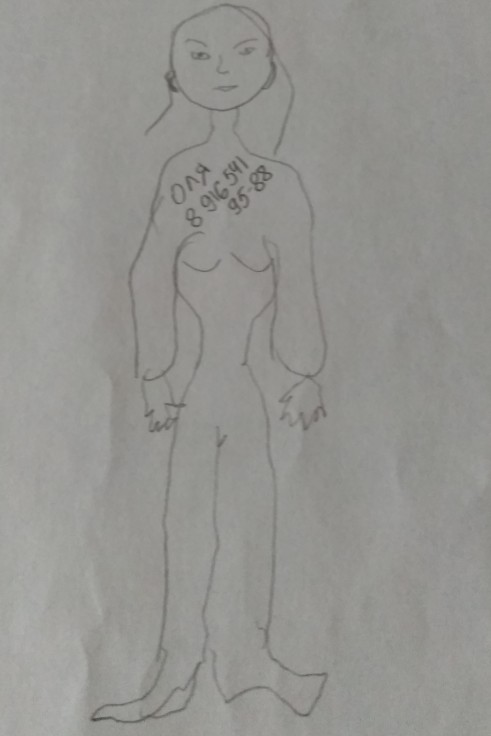 Оля
8 916 541
95-88